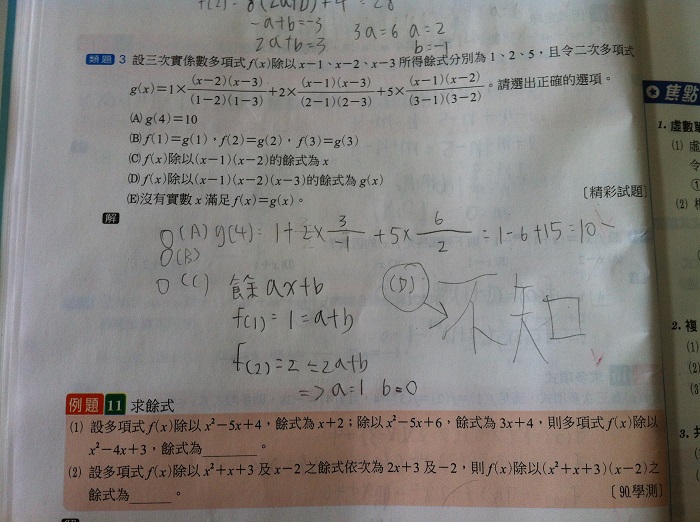 -a+b=-3
2a+b=3
3a=6 a=2
b=-1
類題 3 設三次實係數多項式f(x)除以x-1、x-2、x-3所得餘式分別為1、2、5,且令二次多項式
g(x)=1×(x-2)(x-3)/(1-2)(1-3)+2×(x-1)(x-3)/(2-1)(2-3)+5×(x-1)(x-2)/(3-1)(3-2)。請選出正確的選項。
(A) g(4)=10
(B) f(1)=g(1),f(2)=g(2),f(3)=g(3)
(C) f(x)除以(x-1)(x-2)的餘式為x
(D) f(x)除以(x-1)(x-2)(x-3)的餘式為g(x)
(E)沒有實數x滿足f(x)=g(x)。
〔精彩試題〕
解
O(A) g(4)=1+2×3/-1+5×6/2=1-6+15=10
O(B)
O(C) 餘ax+b
f(1)=1=a+b
f(2)=2=2a+b
=>a=1 b=0
(D): 不知
例題 11 求餘式
(1) 設多項式f(x)除以x²-5x+4,餘式為x+2;除以x²-5x+6,餘式為3x+4,則多項式f(x)除以
x²-4x+3,餘式為______。
(2) 設多項式f(x)除以x²+x+3及x-2之餘式依次為2x+3及-2,則f(x)除以(x²+x+3)(x-2)之
餘式為______。
〔90.學測〕
焦點
1. 虛數單
(1) 虛
令
①
(2)
2. 複
(1)
(2)
(3)
3.
(1)